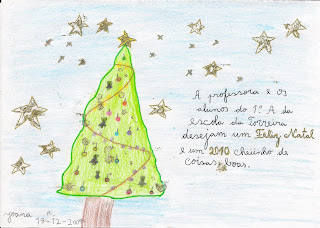 A professora e os
alunos do 1º A da
escola da Torreira
desejam um Feliz Natal
e um 2010 cheiinho de
coisas boas.
Joana
17-12-2009